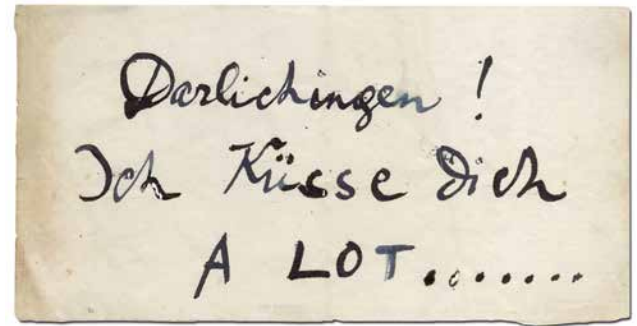 Darlichingen !
Ich Küsse Dich
A LOT........